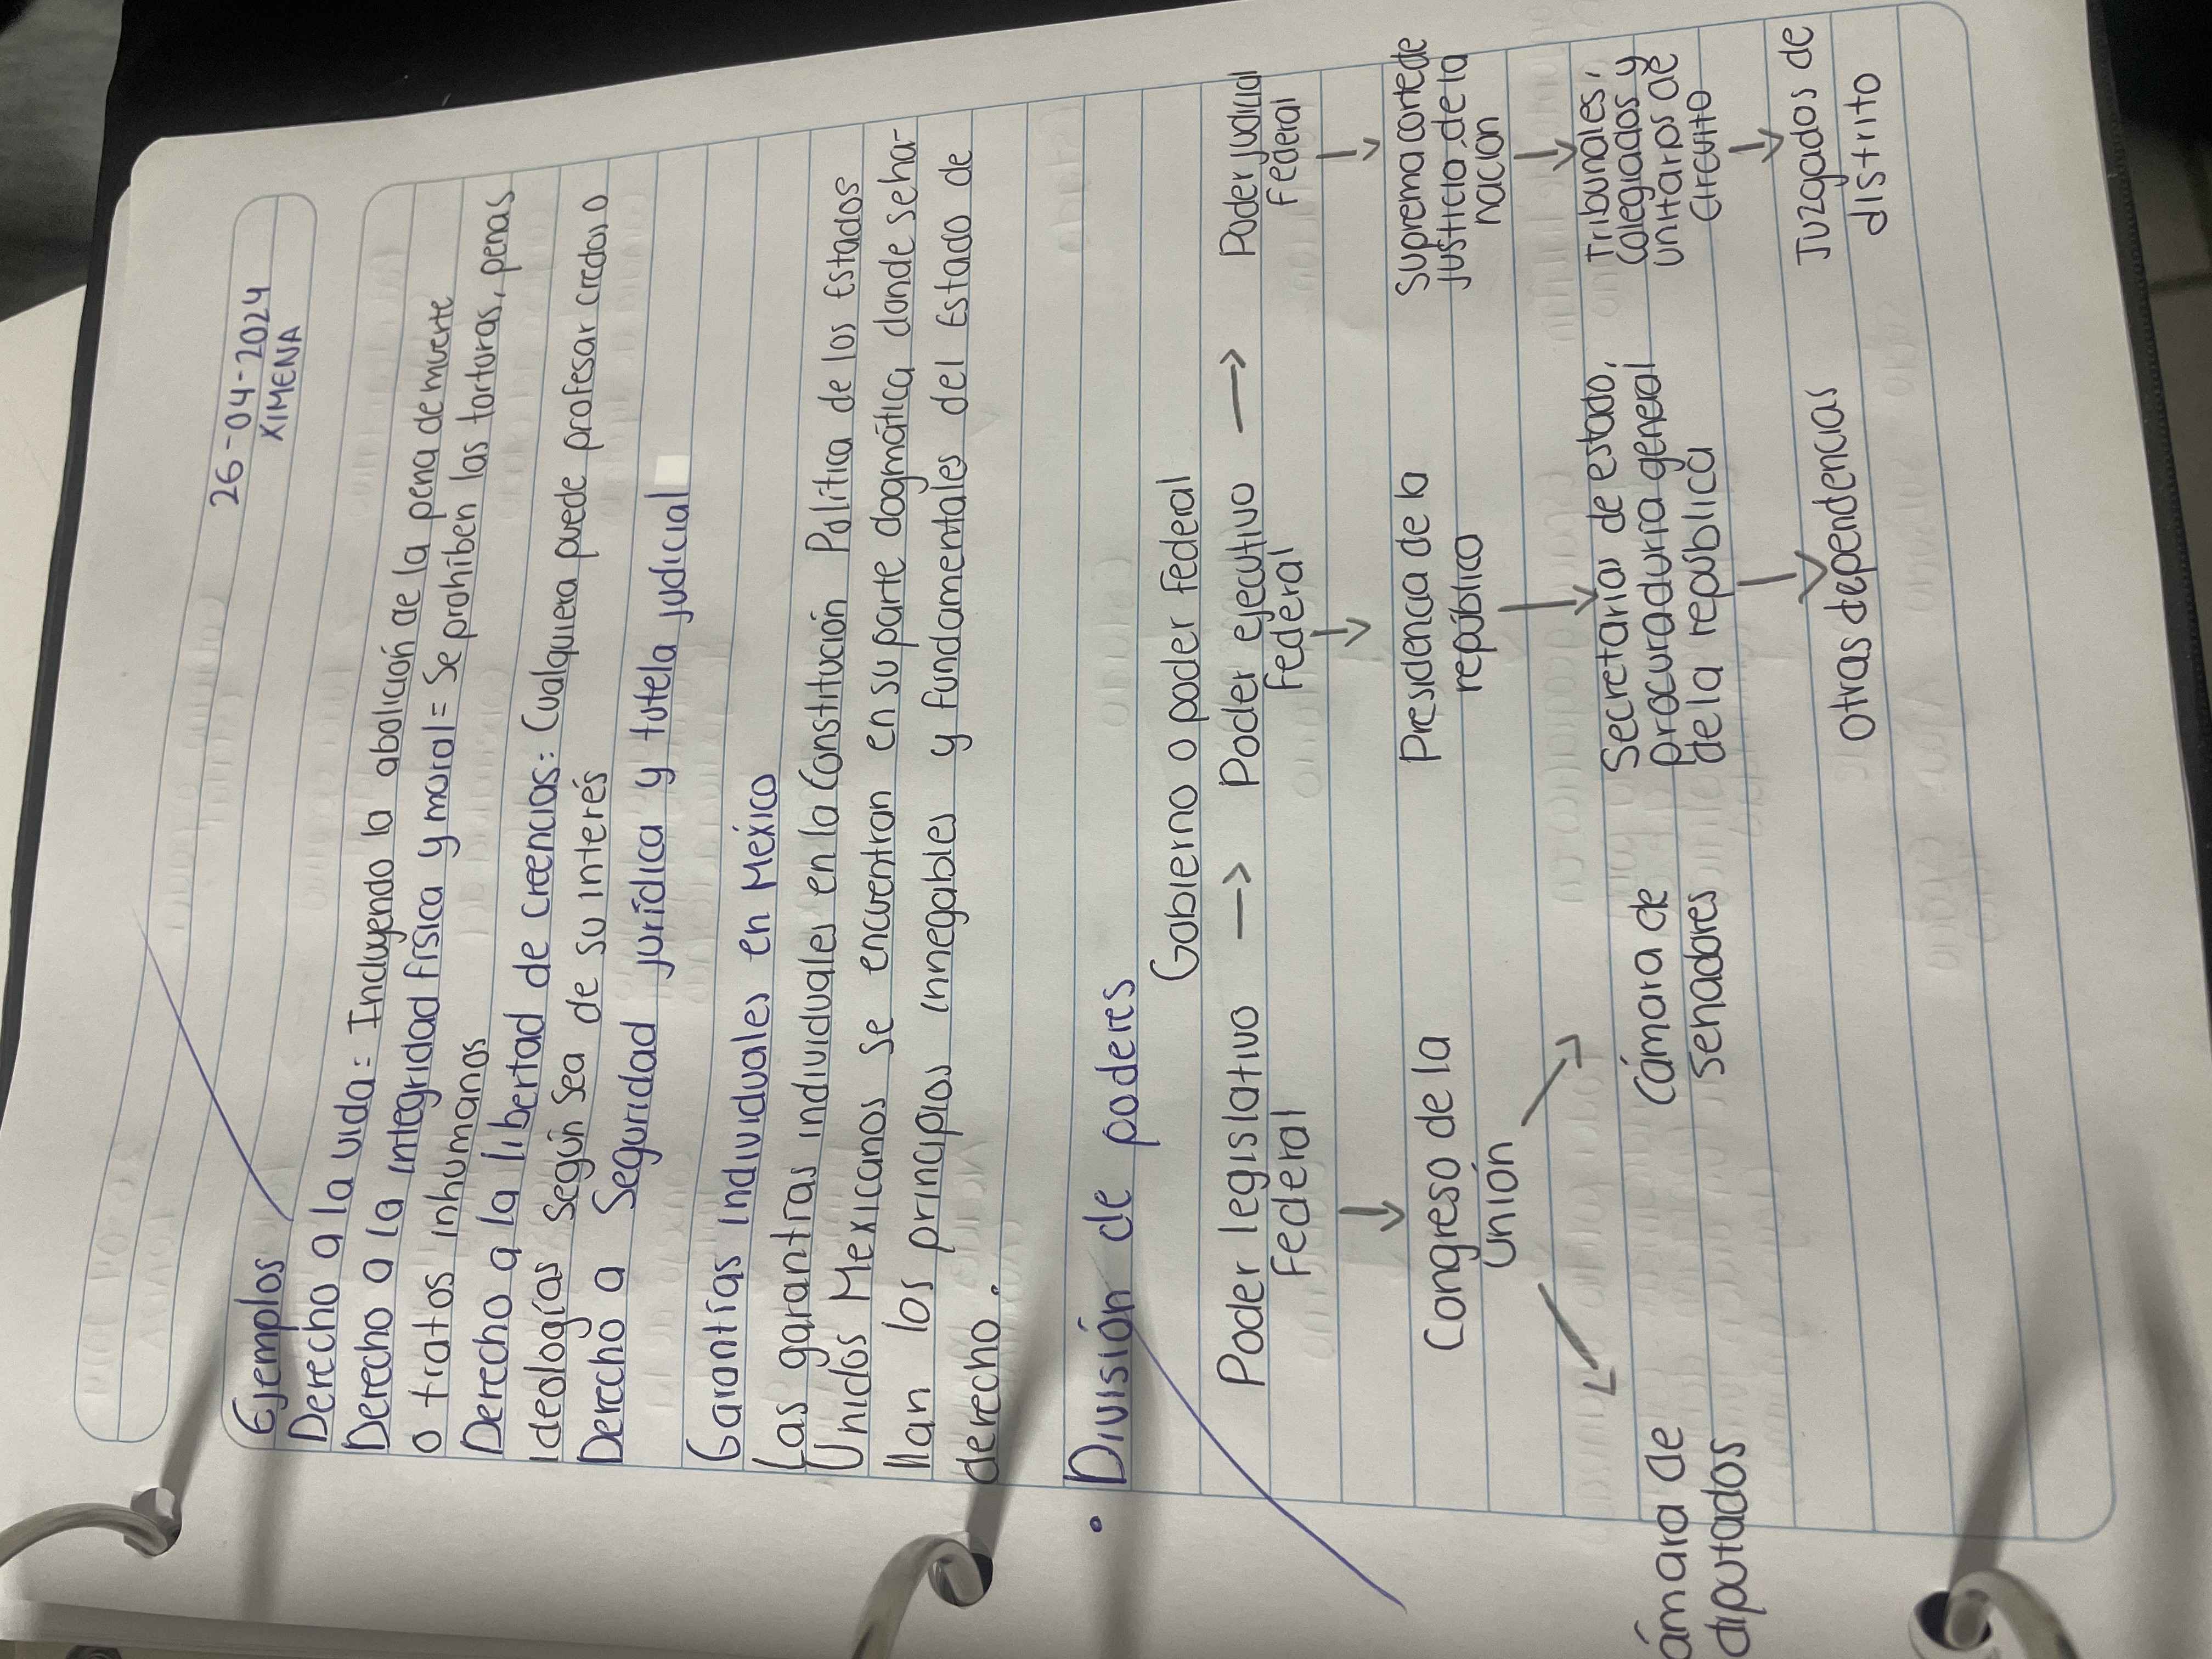 26-04-2024
XIMENA
Ejemplos
Derecho a la vida= Incluyendo la abolición de la pena de muerte
Derecho a la integridad física y moral= Se prohíben las torturas, penas
o tratos inhumanos
Derecho a la libertad de creencias: Cualquiera puede profesar credos o
ideologías según sea de su interés
Derecho a seguridad jurídica y tutela judicial
Garantías individuales en México
Las garantías individuales en la Constitución Política de los Estados
Unidos Mexicanos se encuentran en su parte dogmática donde se ha-
llan los principios innegables y fundamentales del Estado de
derecho.
• División de poderes
Gobierno o poder federal
Poder legislativo → Poder ejecutivo → Poder judicial
Federal Federal Federal
↓ ↓ ↓
Congreso de la Presidencia de la Suprema corte de
Unión república justicia de la
nación
↙ ↘ ↓ ↓
ámara de Cámara de Secretarías de estado, Tribunales,
diputados senadores procuraduría general colegiados y
de la república unitarios de
circuito
↓ ↓
otras dependencias Juzgados de
distrito